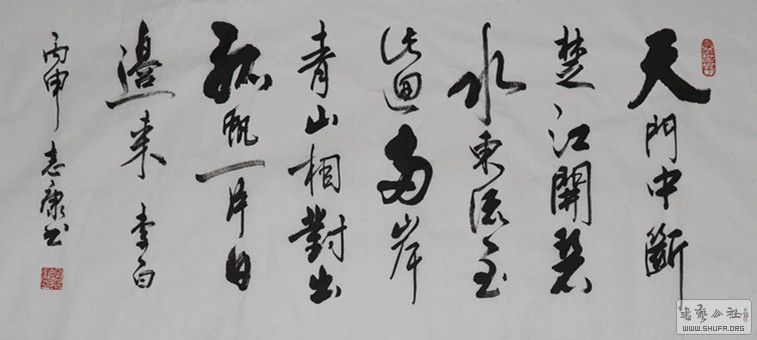 天門中斷
楚江開碧
水東流至
此迴兩岸
青山相對出
孤帆一片日
邊來 李白
丙申 志康书
WWW.SHUFA.ORG